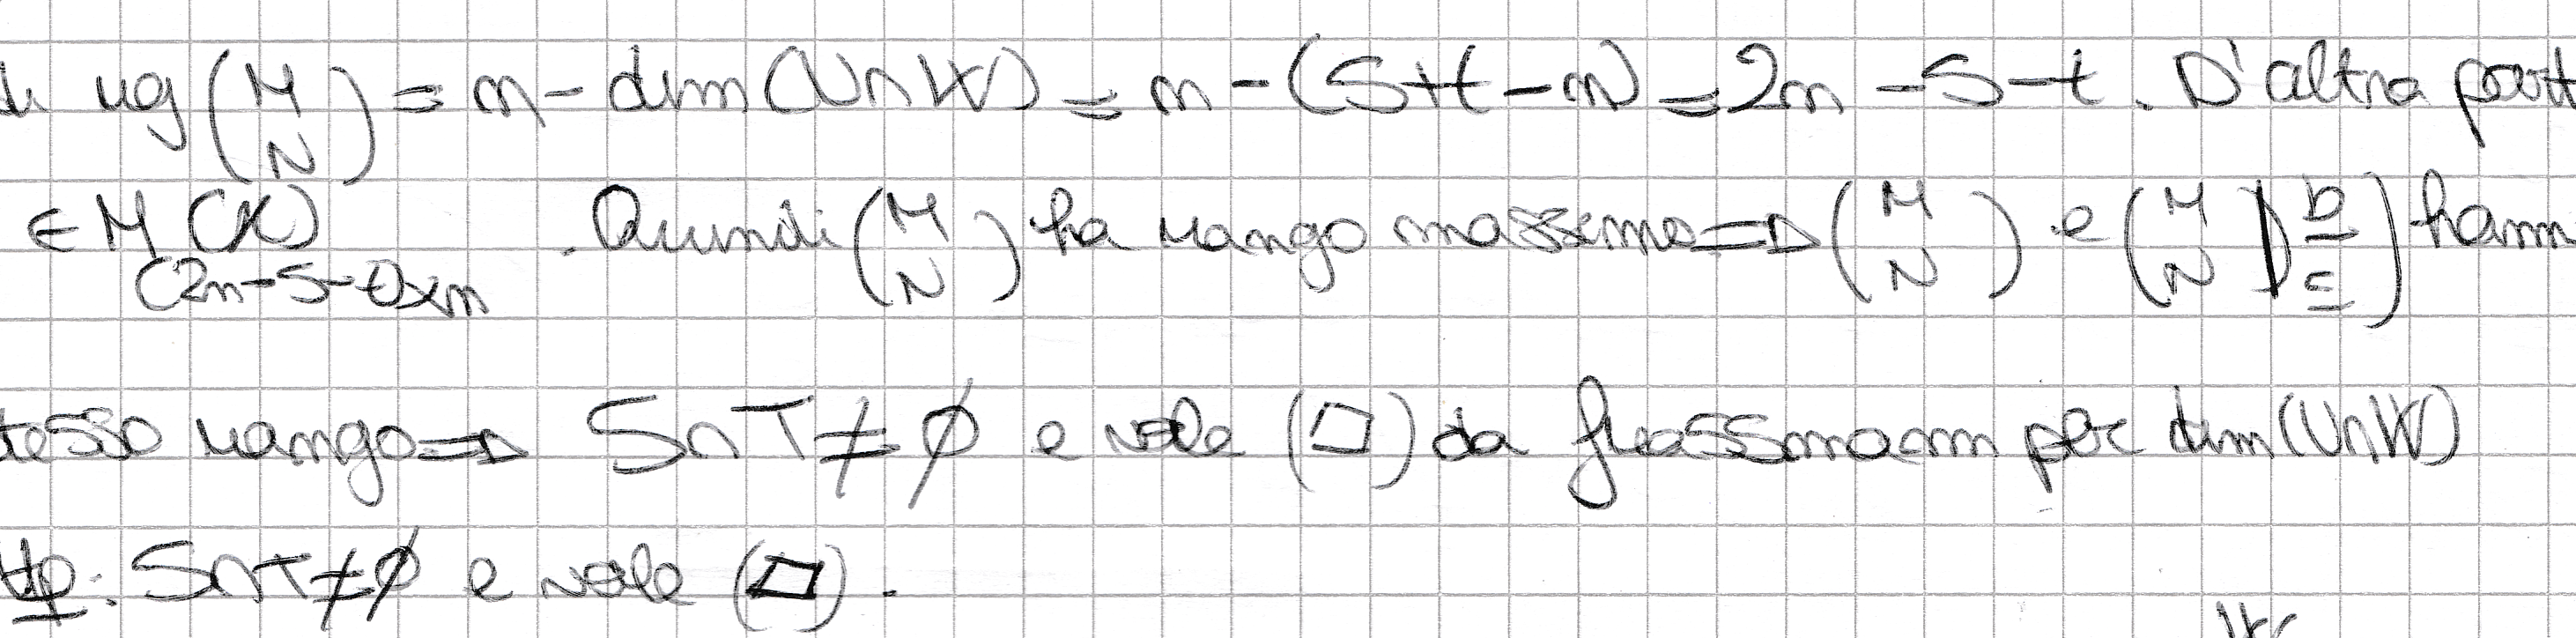 rg (M N) = n - dim (U∩W) = n - (s+t-n) = 2n - s - t. D'altra part
∈ M (K) (2n-s-t)xn . Quindi (M N) ha rango massimo => (M N) e (M N | b c) hann
tesso rango => S∩T ≠ ∅ e vale (□) da Grassmann per dim (U∩W)
Hp: S∩T ≠ ∅ e vale (□).